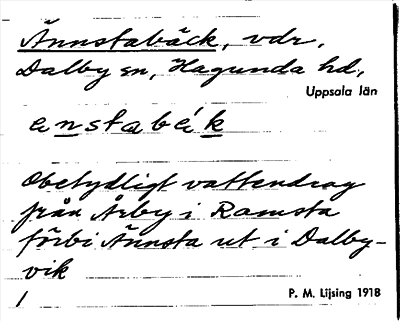 Ännstabäck, vdr,
Dalby sn, Hagunda hd,
Uppsala län
ens̲tabék̲
Obetydligt vattendrag
från Årby i Ramsta
förbi Ännsta ut i Dalby-
vik
/
P. M. Lijsing 1918